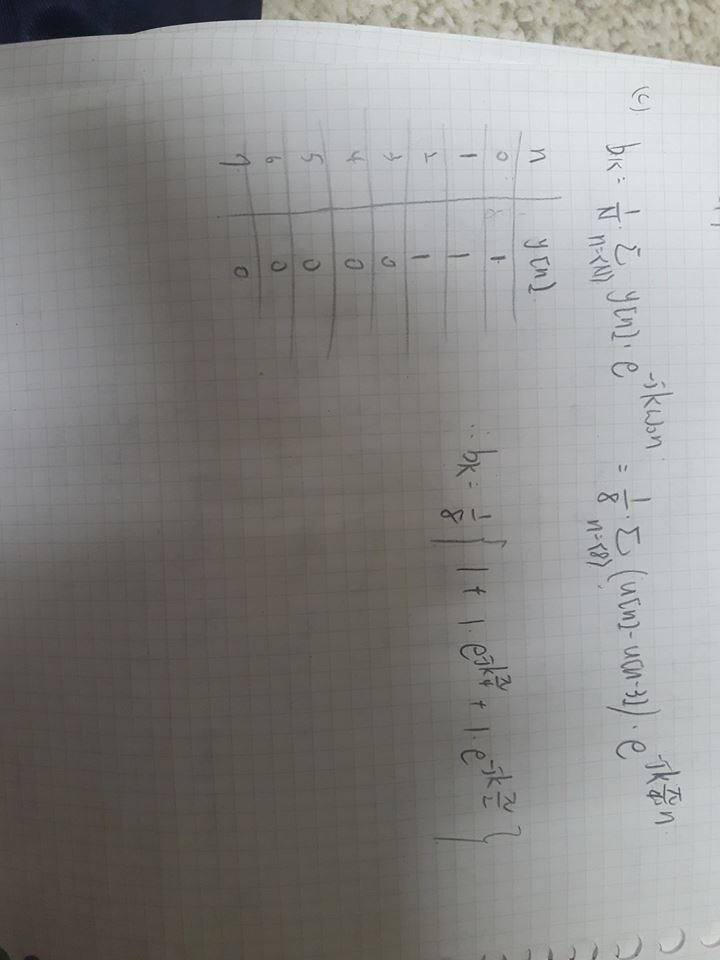 (c). b_k = 1/N · Σ_{n=<N>} y[n] · e^{-jkω₀n} = 1/8 · Σ_{n=<8>} (u[n]-u[n-3]) · e^{-jk π/4 n}
n y[n]
0 1
1 1
2 1
3 0
4 0
5 0
6 0
7 0
∴ b_k = 1/8 { 1 + 1·e^{-jk π/4} + 1·e^{-jk π/2} }